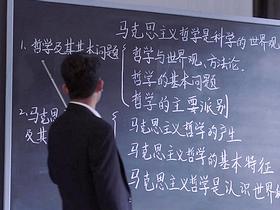 马克思主义哲学是科学的世界观
1.哲学及其基本问题
哲学与世界观、方法论
哲学的基本问题
哲学的主要派别
2.马克思
及其
马克思主义哲学的产生
马克思主义哲学的基本特征
马克思主义哲学是认识世界